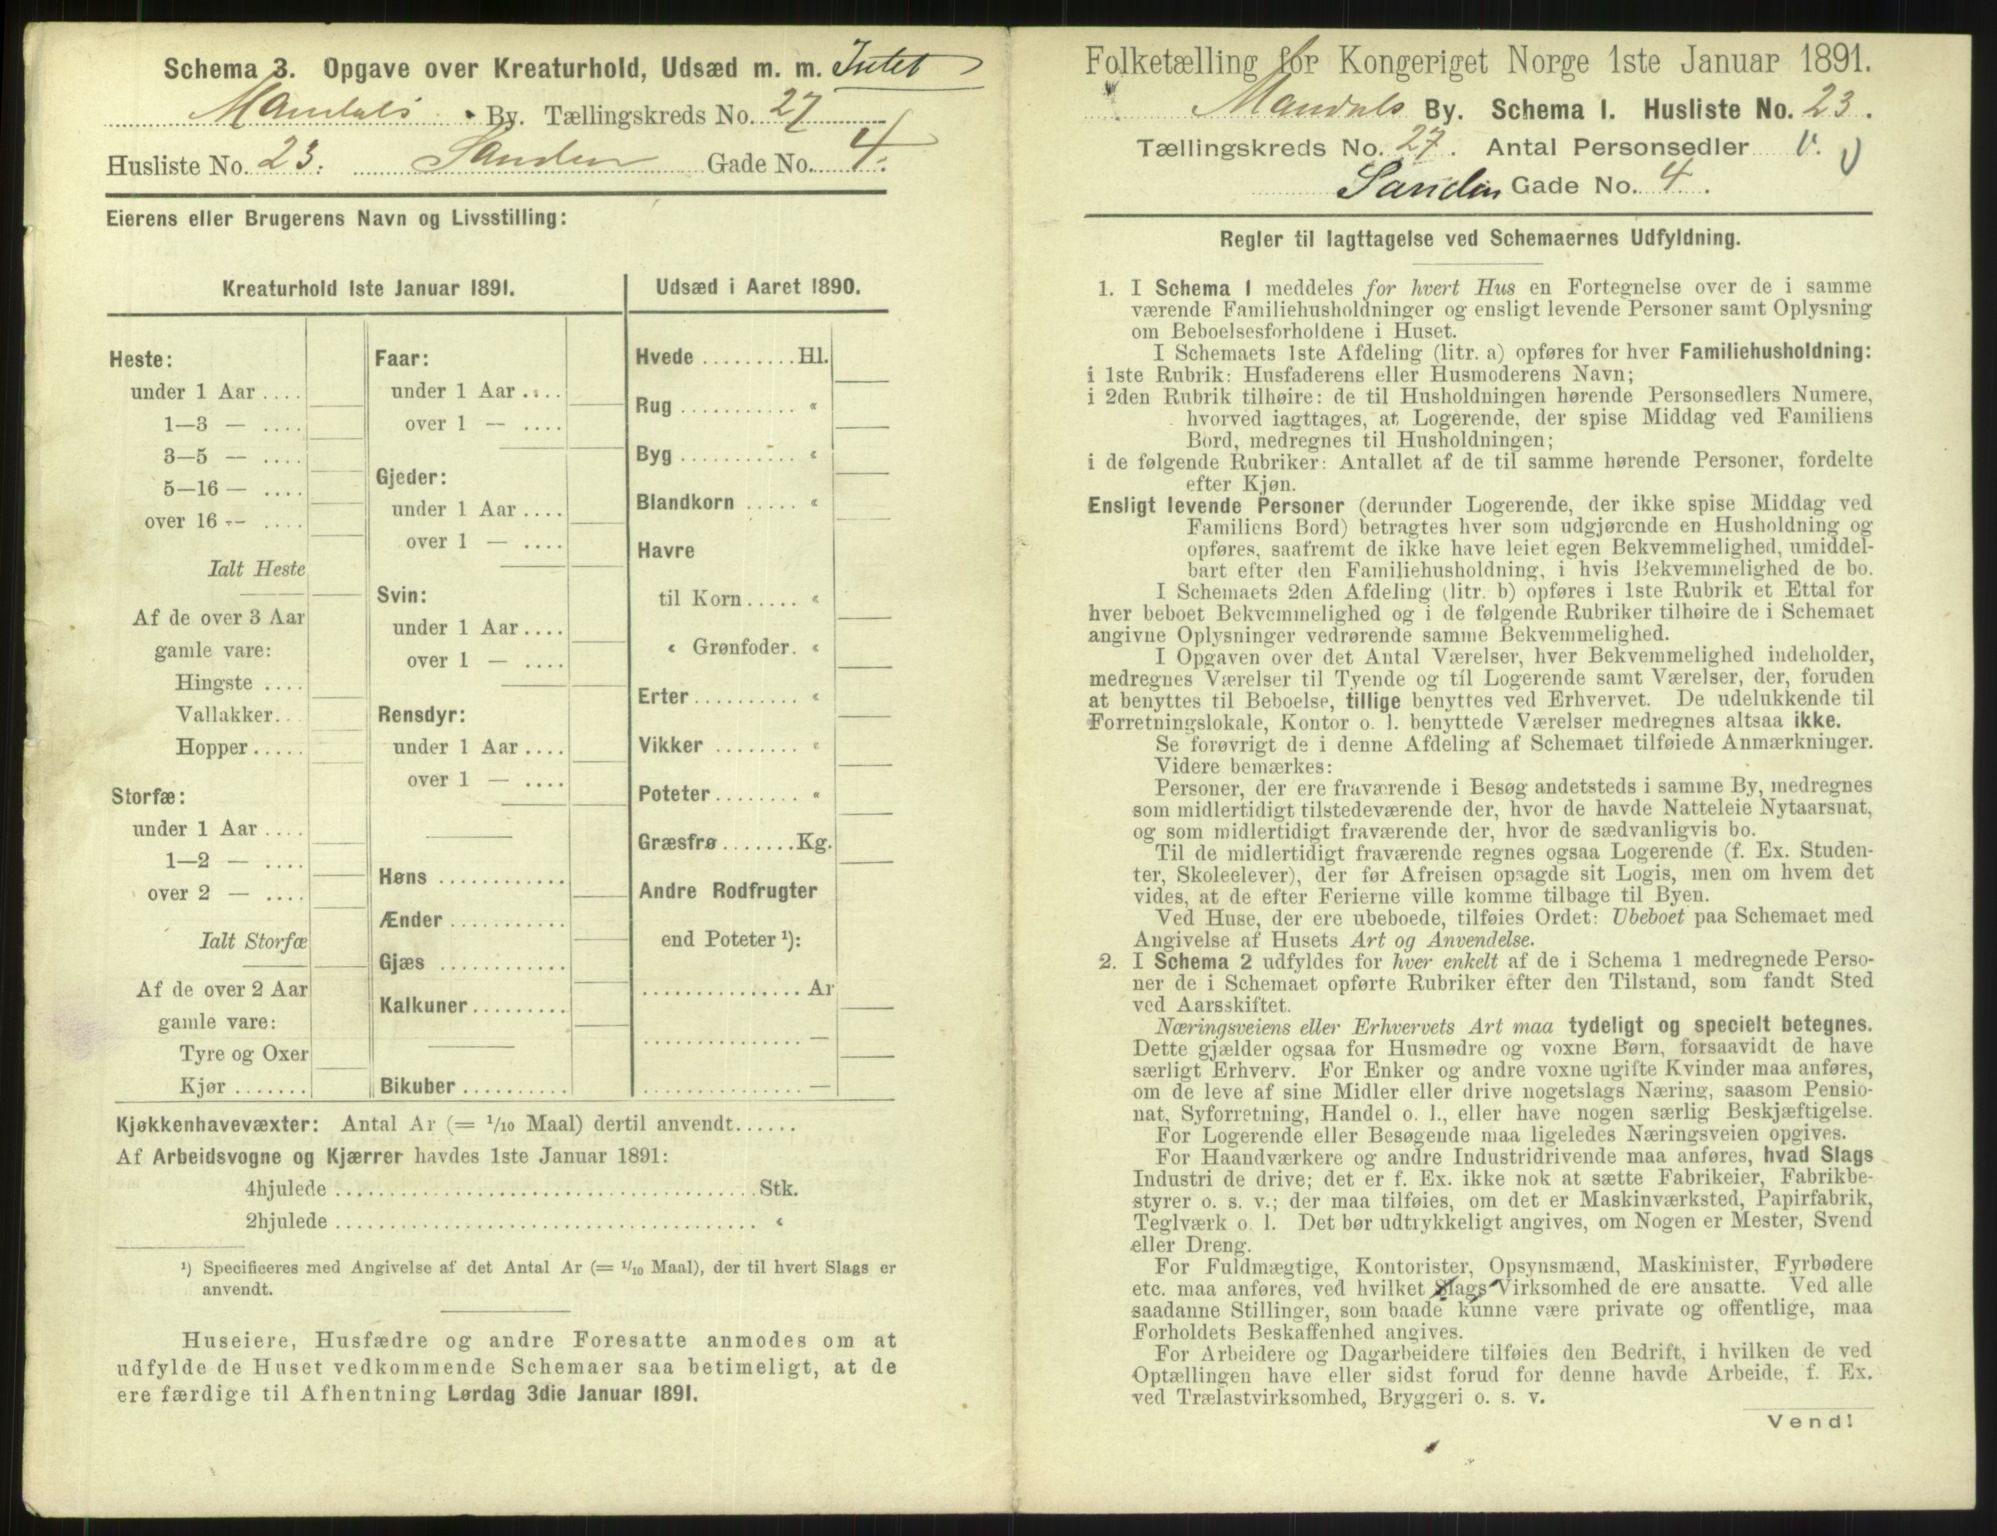 Schema 3. Opgave over Kreaturhold, Udsæd m. m. Intet
Mandals By. Tællingskreds No. 27
Husliste No. 23. Sanden Gade No. 4.
Eierens eller Brugerens Navn og Livsstilling:
Kreaturhold 1ste Januar 1891.
Heste:
under 1 Aar ....
1—3 — ....
3—5 — ....
5—16 — ....
over 16 — ....
Ialt Heste
Af de over 3 Aar
gamle vare:
Hingste ....
Vallakker..
Hopper .....
Storfæ:
under 1 Aar ....
1—2 — ....
over 2 — ....
Ialt Storfæ
Af de over 2 Aar
gamle vare:
Tyre og Oxer
Kjør .......
Faar:
under 1 Aar ....
over 1 — ....
Gjeder:
under 1 Aar ....
over 1 — ....
Svin:
under 1 Aar ....
over 1 — ....
Rensdyr:
under 1 Aar ....
over 1 — ....
Høns ............
Ænder ...........
Gjæs ............
Kalkuner .........
Bikuber ..........
Udsæd i Aaret 1890.
Hvede ......... Hl.
Rug ........... «
Byg ........... «
Blandkorn ..... «
Havre
til Korn ..... «
« Grønfoder. «
Erter .......... «
Vikker ......... «
Poteter ........ «
Græsfrø ....... Kg.
Andre Rodfrugter
end Poteter ¹):
............... Ar
............... —
............... —
Kjøkkenhavevæxter: Antal Ar (= 1/10 Maal) dertil anvendt......
Af Arbeidsvogne og Kjærrer havdes 1ste Januar 1891:
4hjulede ..................................... Stk.
2hjulede ..................................... «
¹) Specificeres med Angivelse af det Antal Ar (= 1/10 Maal), der til hvert Slags er
anvendt.
Huseiere, Husfædre og andre Foresatte anmodes om at
udfylde de Huset vedkommende Schemaer saa betimeligt, at de
ere færdige til Afhentning Lørdag 3die Januar 1891.
Folketælling for Kongeriget Norge 1ste Januar 1891.
Mandals By. Schema I. Husliste No. 23.
Tællingskreds No. 27. Antal Personsedler
Sanden Gade No. 4.
Regler til Iagttagelse ved Schemaernes Udfyldning.
1. I Schema 1 meddeles for hvert Hus en Fortegnelse over de i samme
værende Familiehusholdninger og ensligt levende Personer samt Oplysning
om Beboelsesforholdene i Huset.
I Schemaets 1ste Afdeling (litr. a) opføres for hver Familiehusholdning:
i 1ste Rubrik: Husfaderens eller Husmoderens Navn;
i 2den Rubrik tilhøire: de til Husholdningen hørende Personsedlers Numere,
hvorved iagttages, at Logerende, der spise Middag ved Familiens
Bord, medregnes til Husholdningen;
i de følgende Rubriker: Antallet af de til samme hørende Personer, fordelte
efter Kjøn.
Ensligt levende Personer (derunder Logerende, der ikke spise Middag ved
Familiens Bord) betragtes hver som udgjørende en Husholdning og
opføres, saafremt de ikke have leiet egen Bekvemmelighed, umiddel-
bart efter den Familiehusholdning, i hvis Bekvemmelighed de bo.
I Schemaets 2den Afdeling (litr. b) opføres i 1ste Rubrik et Ettal for
hver beboet Bekvemmelighed og i de følgende Rubriker tilhøire de i Schemaet
angivne Oplysninger vedrørende samme Bekvemmelighed.
I Opgaven over det Antal Værelser, hver Bekvemmelighed indeholder,
medregnes Værelser til Tyende og til Logerende samt Værelser, der, foruden
at benyttes til Beboelse, tillige benyttes ved Erhvervet. De udelukkende til
Forretningslokale, Kontor o. l. benyttede Værelser medregnes altsaa ikke.
Se forøvrigt de i denne Afdeling af Schemaet tilføiede Anmærkninger.
Videre bemærkes:
Personer, der ere fraværende i Besøg andetsteds i samme By, medregnes
som midlertidigt tilstedeværende der, hvor de havde Natteleie Nytaarsnat,
og som midlertidigt fraværende der, hvor de sædvanligvis bo.
Til de midlertidigt fraværende regnes ogsaa Logerende (f. Ex. Studen-
ter, Skoleelever), der før Afreisen opsagde sit Logis, men om hvem det
vides, at de efter Ferierne ville komme tilbage til Byen.
Ved Huse, der ere ubeboede, tilføies Ordet: Ubeboet paa Schemaet med
Angivelse af Husets Art og Anvendelse.
2. I Schema 2 udfyldes for hver enkelt af de i Schema 1 medregnede Perso-
ner de i Schemaet opførte Rubriker efter den Tilstand, som fandt Sted
ved Aarsskiftet.
Næringsveiens eller Erhvervets Art maa tydeligt og specielt betegnes.
Dette gjælder ogsaa for Husmødre og voxne Børn, forsaavidt de have
særligt Erhverv. For Enker og andre voxne ugifte Kvinder maa anføres,
om de leve af sine Midler eller drive nogetslags Næring, saasom Pensio-
nat, Syforretning, Handel o. l., eller have nogen særlig Beskjæftigelse.
For Logerende eller Besøgende maa ligeledes Næringsveien opgives.
For Haandværkere og andre Industridrivende maa anføres, hvad Slags
Industri de drive; det er f. Ex. ikke nok at sætte Fabrikeier, Fabrikbe-
styrer o. s. v.; der maa tilføies, om det er Maskinværksted, Papirfabrik,
Teglværk o. l. Det bør udtrykkeligt angives, om Nogen er Mester, Svend
eller Dreng.
For Fuldmægtige, Kontorister, Opsynsmænd, Maskinister, Fyrbødere
etc. maa anføres, ved hvilket Slags Virksomhed de ere ansatte. Ved alle
saadanne Stillinger, som baade kunne være private og offentlige, maa
Forholdets Beskaffenhed angives.
For Arbeidere og Dagarbeidere tilføies den Bedrift, i hvilken de ved
Optællingen have eller sidst forud for denne havde Arbeide, f. Ex.
ved Trælastvirksomhed, Bryggeri o. s. v.
Vend!